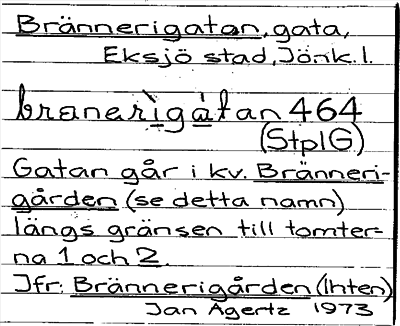 Brännerigatan, gata,
Eksjö stad, Jönk. l.
branerigàtan 464
(StplG)
Gatan går i kv. Bränneri-
gården (se detta namn)
längs gränsen till tomter-
na 1 och 2.
Jfr: Brännerigården (Ihten)
Jan Agertz 1973